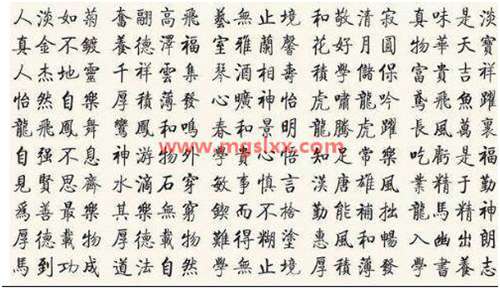 人淡如菊 奮翮高飛 藝無止境 和敬清寂 真味是淡
真金不鍍 養德澤福 室雅蘭馨 花好月圓 物華天寶
人杰地靈 千祥雲集 琴酒相壽 積學儲保 富貴吉祥
怡然自樂 厚積薄發 心曠神怡 虎嘯龍吟 鳶飛魚躍
龍飛鳳舞 鸞鳳和鳴 春和景明 龍騰虎躍 長風萬裏
www.mgslxx.com
自强不息 神游物外 和 心怡 知足常樂 吃虧是福
見賢思齊 水滴石穿 敏事慎言 漢唐雄風 業精于勤
爲善最樂 其樂無窮 鍥而不捨 勤能補拙 馬精神
厚德載物 厚德載物 難得糊塗 惠風和暢 入幽出朗
馬到功成 道法自然 學無止境 厚積薄發 學書養志